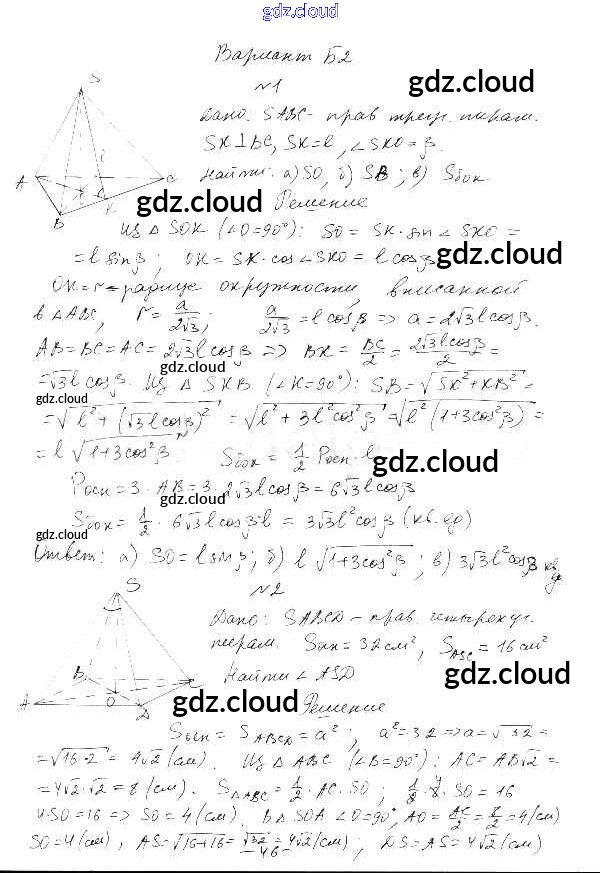 gdz.cloud
Вариант Б2
gdz.cloud
№1
Дано: SABC - прав треуг. пирам.
SK⊥BC, SK=l, ∠SKO=β.
Найти: а) SO, б) SB; в) Sбок
gdz.cloud
Решение
Из △SOK (∠O=90°): SO = SK·sin∠SKO =
= l sinβ; OK = SK·cos∠SKO = l cosβ
gdz.cloud
OK=r – радиус окружности, вписанной
в △ABC, r = a/2√3; a/2√3 = l cosβ => a = 2√3 l cosβ.
gdz.cloud
AB=BC=AC=2√3 l cosβ => BK = BC/2 = 2√3 l cosβ/2 =
= √3 l cosβ. Из △SKB (∠K=90°): SB = √SK²+KB² =
gdz.cloud
= √l²+(√3 l cosβ)² = √l²+3l²cos²β = √l²(1+3cos²β) =
= l √1+3cos²β Sбок = 1/2 Pосн·l
gdz.cloud
Pосн = 3·AB = 3·2√3 l cosβ = 6√3 l cosβ
gdz.cloud
Sбок = 1/2 · 6√3 l cosβ·l = 3√3 l² cosβ (кв.ед)
gdz.cloud
Ответ: а) SO = l sinβ; б) l √1+3cos²β; в) 3√3 l² cosβ кв ед
№2
Дано: SABCD - прав. четырехуг.
gdz.cloud
пирам. Sосн = 32 см², SASC = 16 см²
Найти ∠ASD
gdz.cloud
gdz.cloud
Решение
Sосн = SABCD = a²; a² = 32 => a = √32 =
= √16·2 = 4√2 (см). Из △ABC (∠B=90°): AC = AB√2 =
= 4√2·√2 = 8 (см). S△ABC = 1/2·AC·SO; 1/2·8·SO = 16
4·SO = 16 => SO = 4 (см). В △SOA ∠O=90°, AO = AC/2 = 8/2 = 4 (см)
SO = 4 (см), AS = √16+16 = √32 = 4√2 (см); DS = AS = 4√2 (см)
gdz.cloud
- 46 -